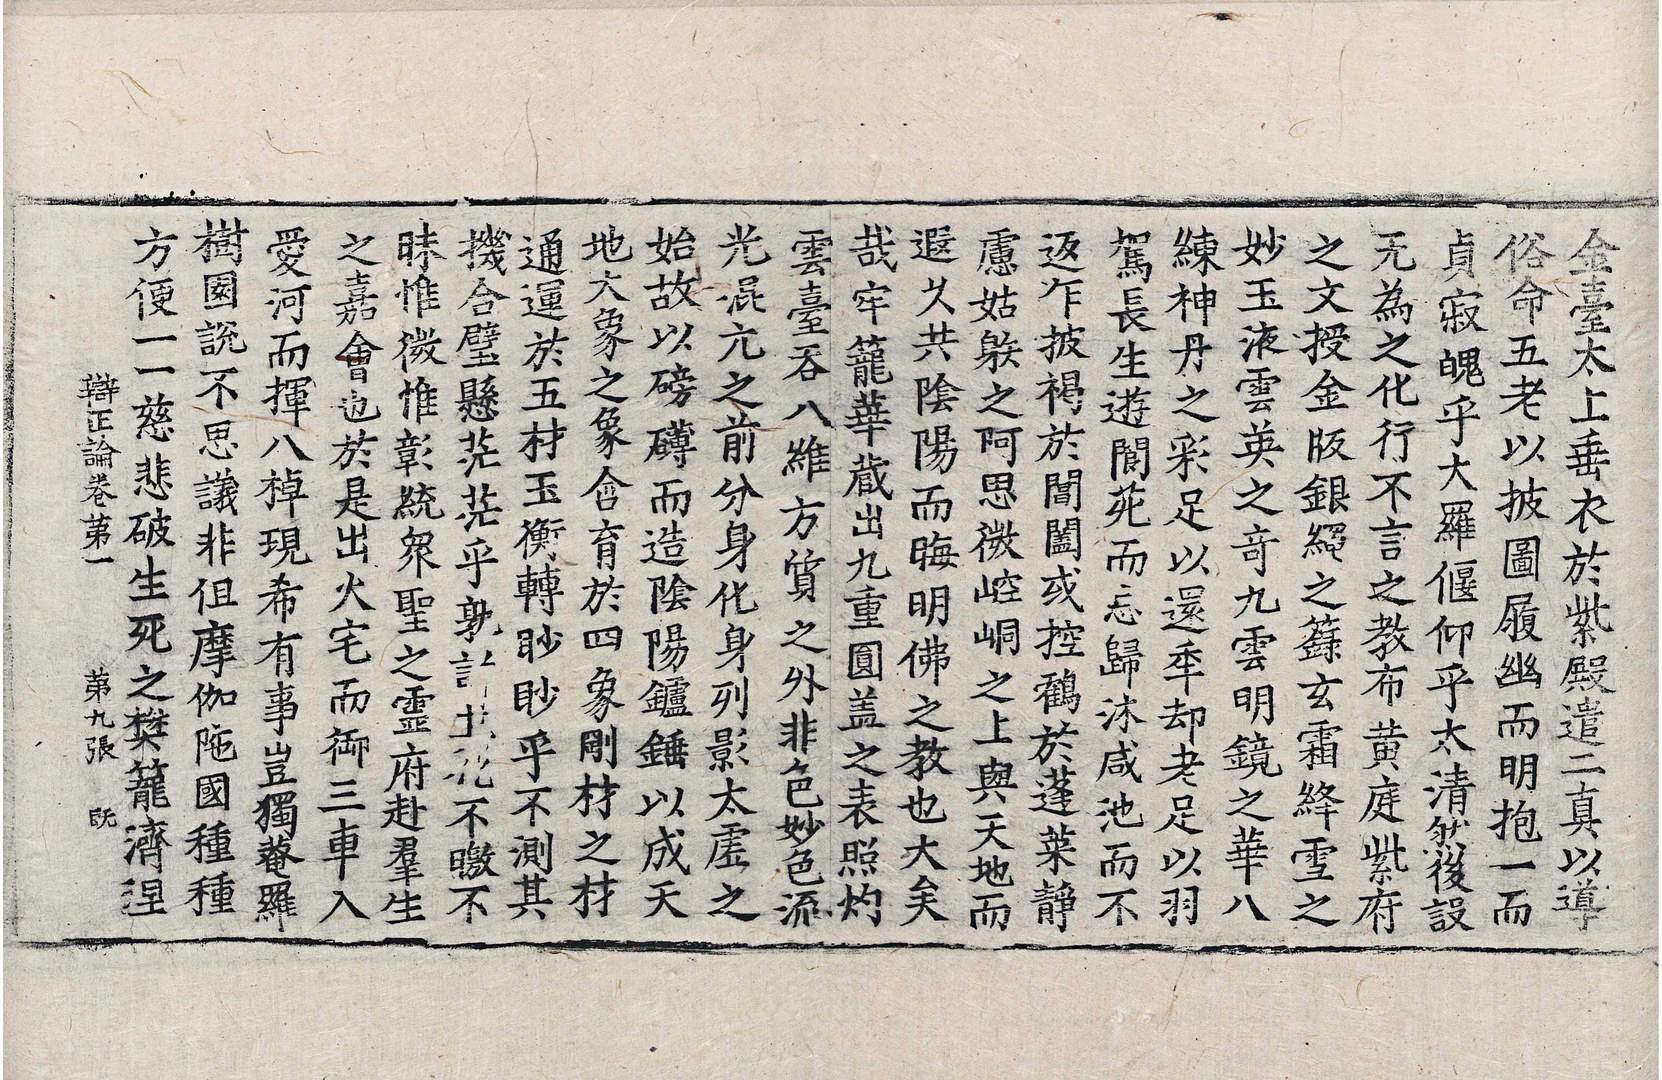 金臺太上垂衣於紫殿遣二真以導
俗命五老以披圖履幽而明抱一而
貞寂魄乎大羅偃仰乎太清然後設
无為之化行不言之教布黄庭紫府
之文授金版銀繩之籙玄霜絳雪之
妙玉液雲英之竒九雲明鏡之華八
練神丹之彩足以還秊却老足以羽
駕長生遊閬苑而忘歸沐咸池而不
返乍披褐於閶闔或控鶴於蓬莱靜
慮姑䠶之阿思微崆峒之上與天地而
遐久共陰陽而晦明佛之教也大矣
哉牢籠華蔵出九重圓盖之表照灼
雲臺吞八維方質之外非色妙色流
光混亢之前分身化身列影太虚之
始故以磅礴而造陰陽鑪錘以成天
地大象之象含育於四象剛材之材
通運於五材玉衡轉眇眇乎不測其
機合璧懸茫茫乎孰不曒不
昧惟微惟彰統衆聖之靈府赴羣生
之嘉會也於是出火宅而御三車入
愛河而揮八棹現希有事豈獨菴羅
樹園説不思議非但摩伽陁國種種
方便一一慈悲破生死之樊籠濟涅
辯正論卷第一 第九張 既